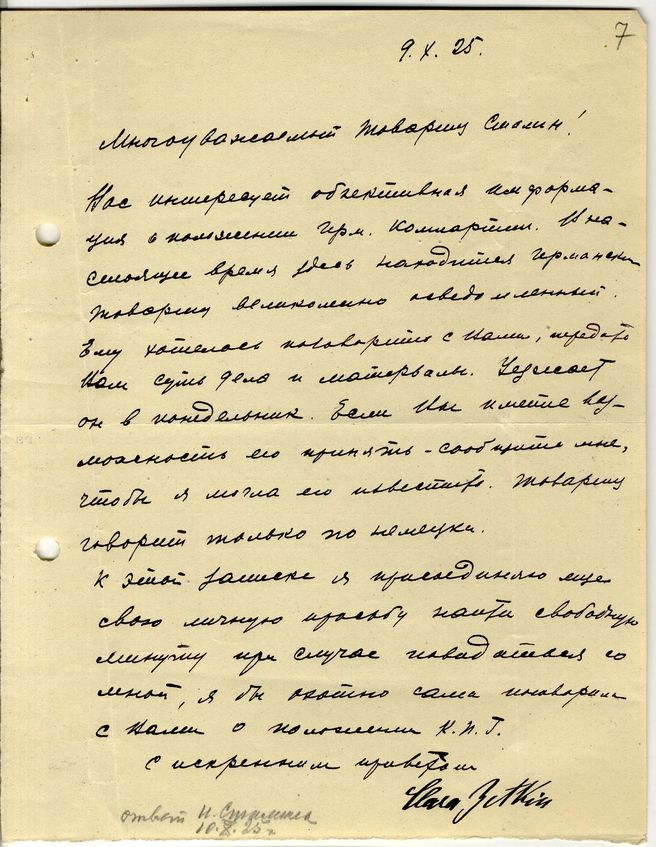 7
9.X.25.
Многоуважаемый товарищ Сталин!
Вас интересует объективная информа-
ция о положении Герм. Компартии. В на-
стоящее время здесь находится германский
товарищ великолепно осведомленный.
Ему хотелось поговорить с Вами, передать
Вам суть дела и материалы. Уезжает
он в понедельник. Если Вы имеете воз-
можность его принять - сообщите мне,
чтобы я могла его известить. Товарищ
говорит только по немецки.
К этой записке я присоединяю еще
свою личную просьбу найти свободную
минуту при случае повидаться со
мной, я бы охотно сама поговорила
с Вами о положении К.П.Г.
С искренним приветом
Clara Zetkin
ответ И. Сталина
10.X.25 г.